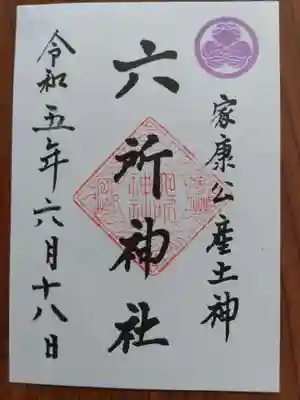 家康公産土神
六所神社
令和五年六月十八日